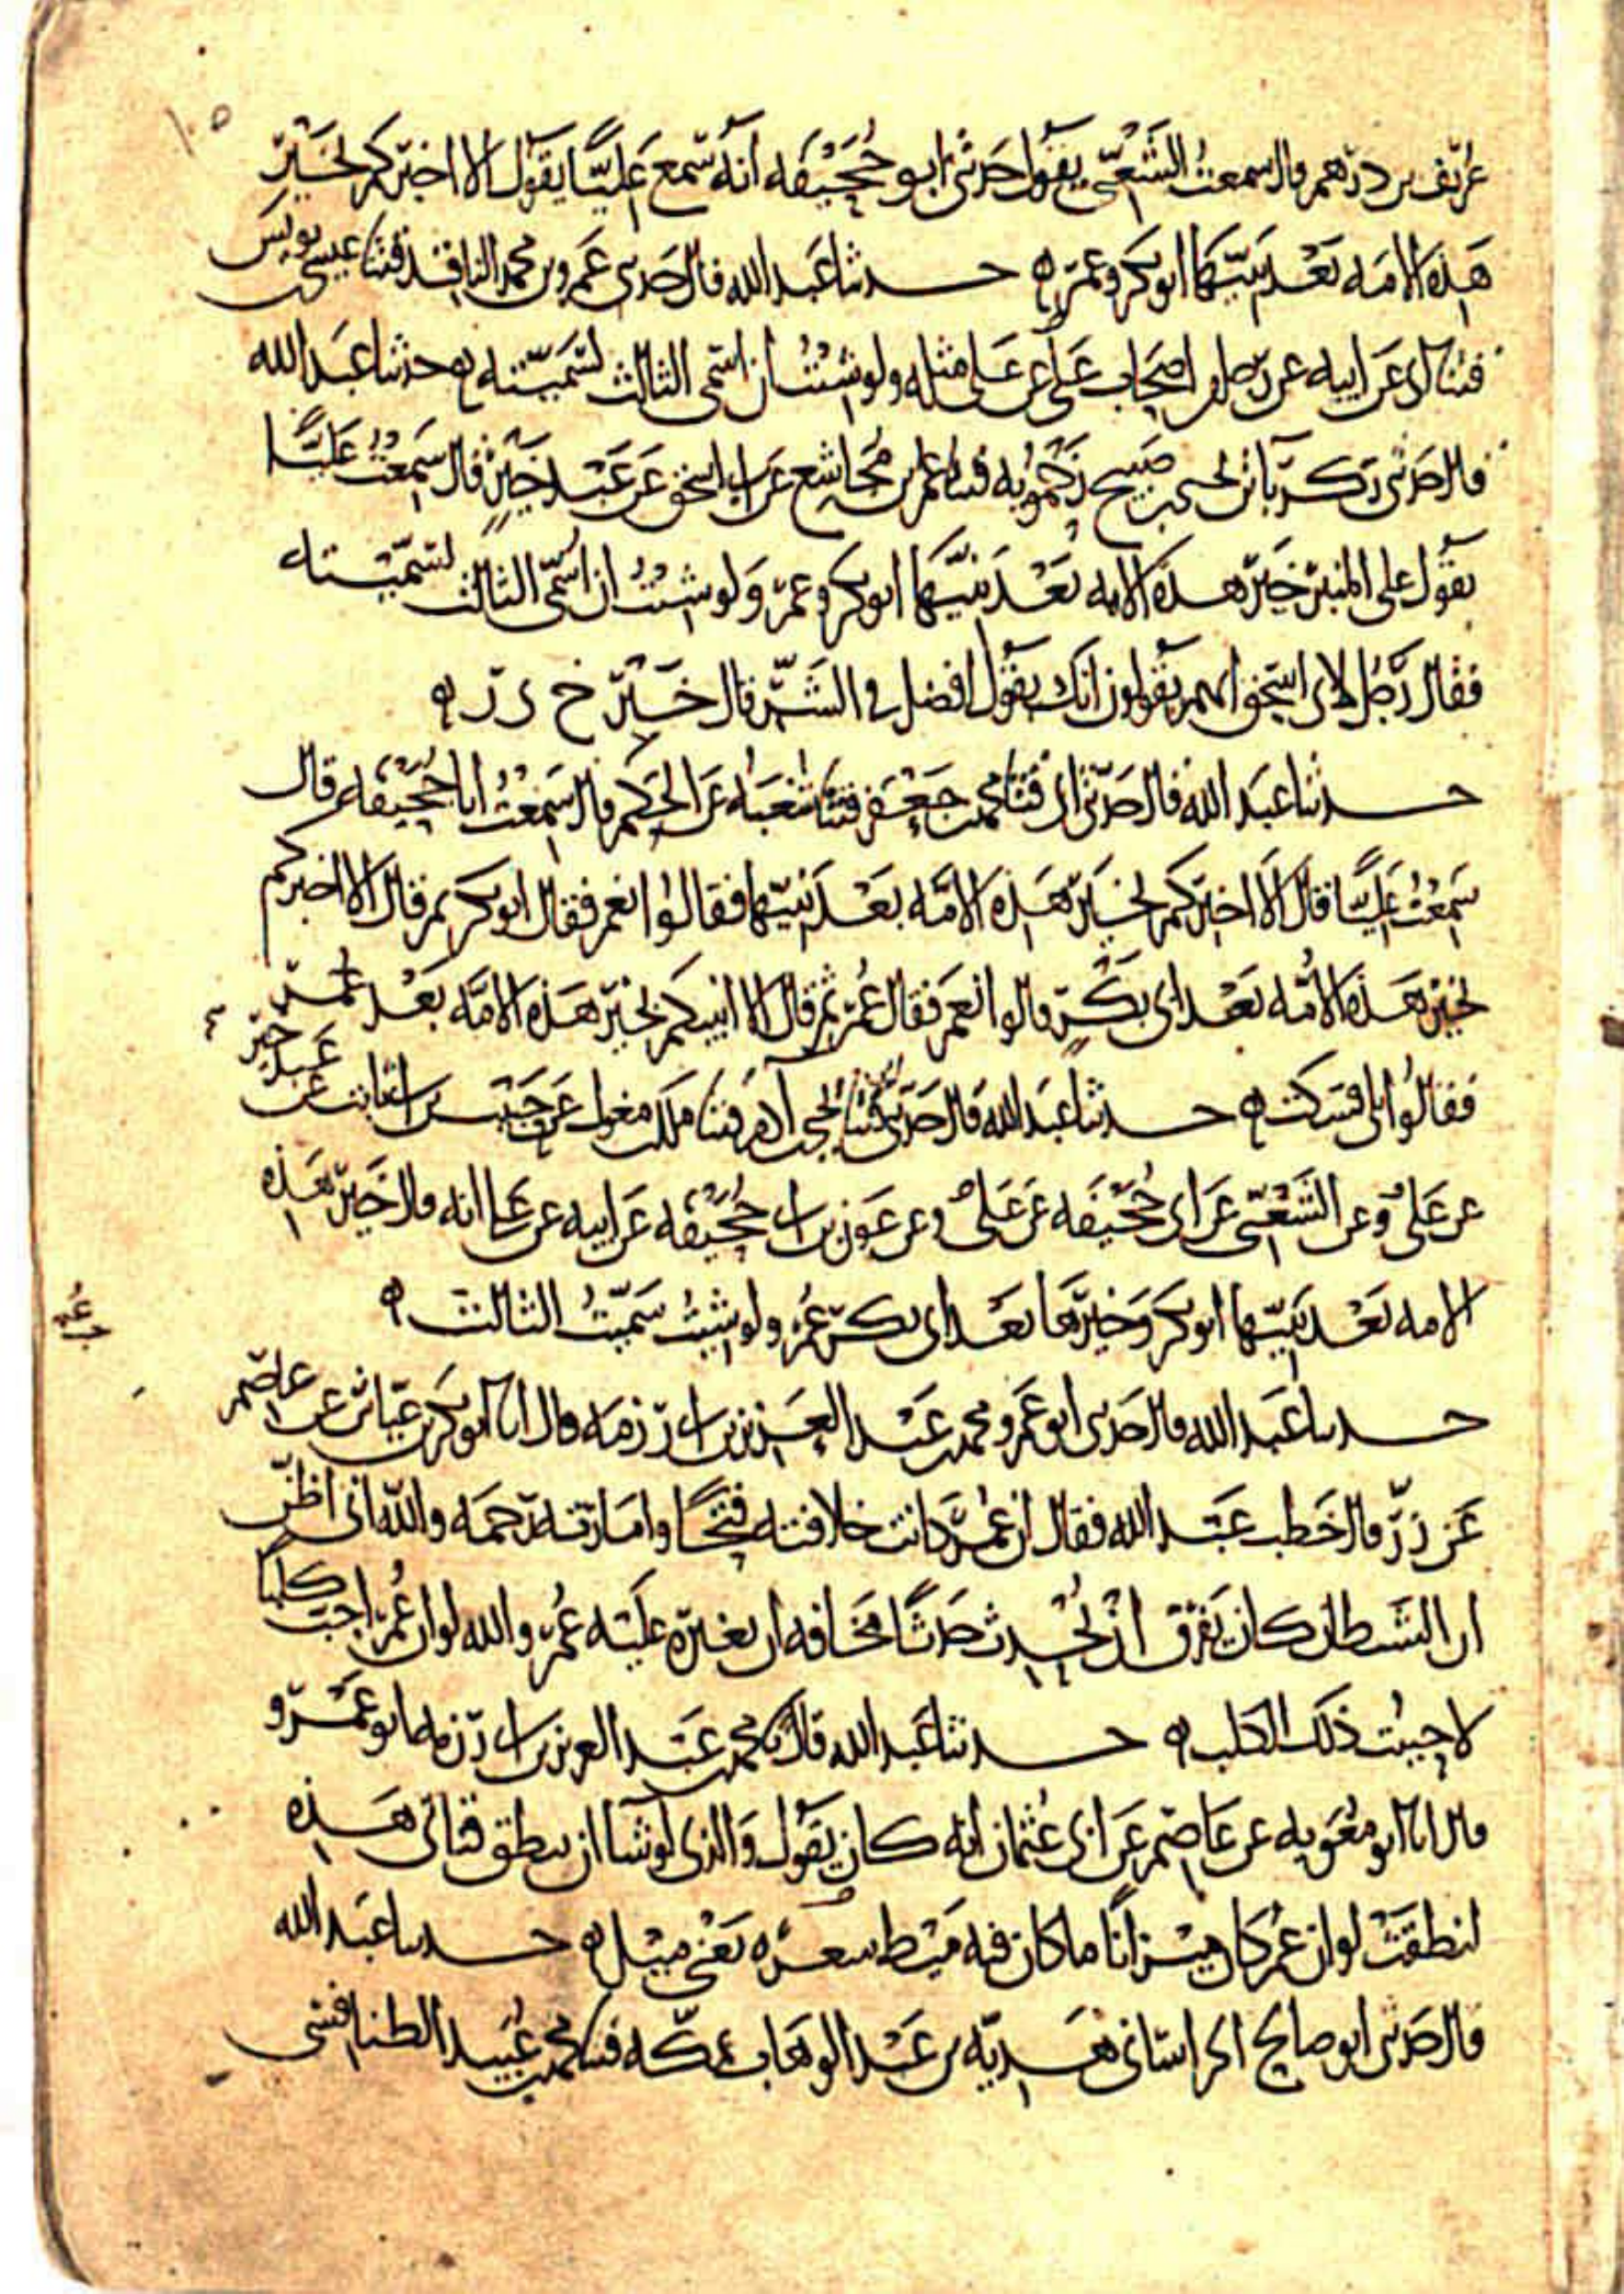 ١٥
عريف بن درهم قال سمعت الشعبي يقول حدثني ابو جُحَيْفَه انه سمع عَليًّا يقول الا اخبركم بخَيْرِ
هَذِه الامَه بَعْد نبيّها ابو بكر وعمر ه حدثنا عَبد الله قال حدثني عَمرو بن محمد الناقد قثنا عيسى يونس
قثنا ابي عَن ابيه عن رجل من اصحاب علي عن علي مثله ولو شئتُ ان اسمّي الثالث لسَمّيته ه حدثنا عبد الله
قال حدثني زكريا بن يحيى بن صبيح زَحْمُويه قثنا عمر بن مُجاشع عن ابي اسحق عَن عَبْد خَيرٍ قال سَمِعْتُ عَليًّا
يقول على المنبر خير هذه الامه بَعْدَ نبيّها ابو بكر وعمر وَلو شئتُ ان اسمّي الثالث لسَمّيته
فقال رَجُل لابي اسحق انهم يقولون انك يقول افضل في الشَّرّ فال خَيْر خ ى ر ه
حدثنا عبَد الله قال حدّثني ابي قثنا محمد بن جَعْفَر قثنا شعْبَه عَن الحَكم قال سَمِعْتُ ابا جُحَيفه قال
سَمِعْتُ عَليًّا قال الَا اخبركم بخَير هَذِه الامَّه بعْدَ نبيّها فقالوا نعم فقال ابو بكر ثم قال الا اخبركم
بخَير هَذه الامَّه بَعْد ابي بَكْر قالوا نعم فقال عُمر ثم قال الا انبيكم بخَير هَذِه الامَّه بَعْد عُمر
فقالوا بلى فسَكت ه حدثنا عَبد الله قال حَدثني ابي قثنا يحيى بن آدم قثنا ملك بن مغول عن حَبيْب بن ابي ثابت عن عَبد خير
عن عَلي وعن الشَّعْبي عَن ابي جُحَيْفَه عَن عَلي وعن عَون بن ابي جُحَيْفه عَن ابيه عن عَلي انه قال خَيْر هَذِه
الامه بَعْد نبيّها ابو بكر وَخيرها بَعْد ابي بكر عُمر ولو شيتُ سَمّيتُ الثالث ه
حدثنا عَبد الله قال حَدثني ابو عَمرو محمد بن عَبْد العَزيز بن ابي رزمَه قال انا ابو بكر بن عيّاش عن عاصم
عَن زرّ قال خَطب عَبْد الله فقال ان عُمر كانت خلافته فتحًا وامَارته رَحمَه والله اني اظنّ
ان الشيطان كان يَفرَق ان يُحدِث حَدثًا مَخافه ان يغيرَه عَلَيْه عُمر والله لو ان عُمر احبّ كلبا
لاحببت ذلك الكلب ه حدثنا عَبد الله قال نا محمد بن عَبْد العزيز بن ابي رزمه ابو عَمْرو
قال انا ابو مُعَويه عن عَاصم عَن ابي عُثمان انه كان يقول وَالذي لو شا ان ينطق قناتي هَذِه
انطقَتْ لو ان عُمر كان ميْزانًا ما كان فيه مَيْط شعرَه يَعْني ميْل ه حدثنا عَبد الله
قال حدثني ابو صالح الخراساني هَديّه بن عَبْد الوهَاب بمكّه قثنا محمد بن عُبَيد الطنافسي